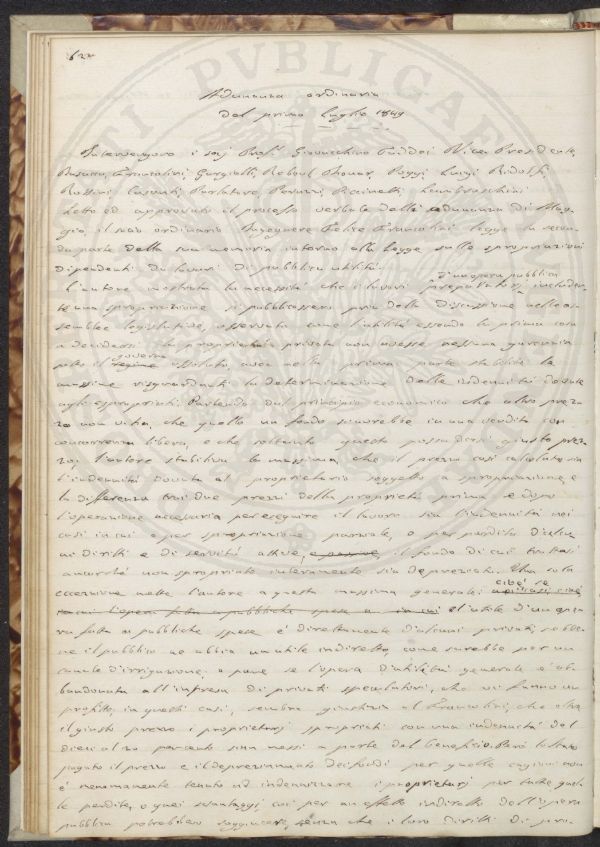 622
Adunanza ordinaria
del primo Luglio 1849
Intervengono i sigj Proff. Giovacchino Taddei Vice Presidente,
Busacca, Grimaldi, Gargiolli, Reboul Thouar, Poggi Luigi Ridolfi,
Rossini Casanti, Parlatore Peruzzi, Raineteli Lambruschini
Letto ed approvato il processo verbale della adunanza di Mag-
gio, il socio ordinario Ingegnere Felice Francolini legge la secon-
da parte della sua memoria intorno alla Legge sulle espropriazioni
dipendenti da lavori di pubblica utilità
d'un opera pubblica
L'autore mostrata la necessità che i lavori preparatorj includen-
te una spropriazione si pubblicassero pria della discussione nelle as-
semblee legislative, osservato come l'utilità essendo la prima cosa
a decidersi la proprietà privata non avesse nessuna garanzia
governo
sotto il regime assoluto, avea nella prima parte stabilite le
massime risguardanti la determinazione delle indennità dovute
agli espropriati. Partendo dal principio economico che altro prez-
zo non v'è, che quello un fondo sicurebbe in una vendita con
concorrenza libera, e che soltanto questo possa dirsi giusto prez-
zo; l'autore stabiliva la massima, che il prezzo così calcolato sia
l'indennità dovuta al proprietario soggetto a spropriazione, e
la differenza trai due prezzi della proprietà prima e dopo
l'operazione necessaria per eseguire il lavoro sia l'indennità nei
casi in cui o per spropriazione parziale, o per perdita d'alcu-
ni diritti e di servitù attive, e passive il fondo di cui trattasi
ancorchè non spropriato interamente sia deprezzato. Una sola
cioè se
eccezione mette l'autore a questa massima generale:
in cui l'opera fatta a pubbliche spese a in cui e l'utile d'un ope-
ra fatta a pubbliche spese è direttamente d'alcuni privati, sebbe-
ne il pubblico ne abbia un utile indiretto, come sarebbe per un
canale d'irrigazione; o pure se l'opera d'utilità generale è ab-
bandonata all'impresa di privati speculatori, che vi fanno un
profitto, in questi casi, sembra giustizia al Francolini, che oltre
il giusto prezzo i proprietarj spropriati con una indennità del
dieci al 20 percento sian messi a parte del beneficio. Però lo Stato
pagato il prezzo e il deprezzamento dei fondi per quelle cagioni non
è menomamente tenuto ad indennizzare i proprietarj per tutte quel-
le perdite, o quei svantaggi cui per un effetto indiretto dell'opera
pubblica potrebbero soggiacere, senza che i loro diritti di pro-